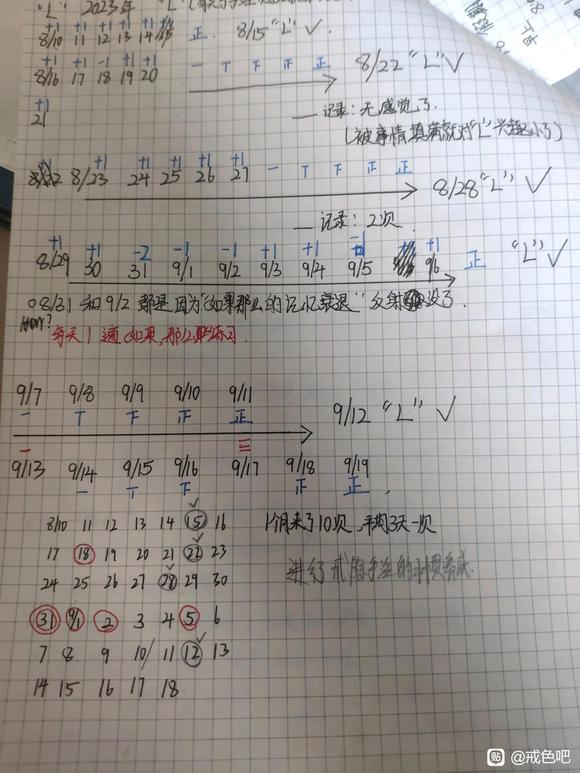 "L" 2023年
+1 +1 +1 +1 +1
8/10 11 12 13 14 15 正. 8/15 "L" ✓.
+1 +1 -1 +1 +1
8/16 17 18 19 20 一 T 下 正 正 8/22 "L" ✓
+1
21
— 记录: 无感觉了.
(被事情填满就对"L"兴趣小了)
+1 +1 +1 +1 +1
8/23 24 25 26 27 一 T 下 正 正 8/28 "L" ✓
— 记录: 2次.
+1 +1 -2 -1 -1 +1 +1 +1
8/29 30 31 9/1 9/2 9/3 9/4 9/5 9/6 正 "L" ✓
08/31 和 9/2 都是因为"如果那么的记忆衰退"反射没了.
How?
每天1遍如果,那么练习.
9/7 9/8 9/9 9/10 9/11
一 T 下 正 正 9/12 "L" ✓
9/13 9/14 9/15 9/16 9/17 9/18 9/19
一 T 下 正 正
8/10 11 12 13 14 15 16
1个月来了10次,平均3天一次
17 18 19 20 21 22 23
24 25 26 27 28 29 30
31 9/1 2 3 4 5 6
7 8 9 10/ 11 12 13
14 15 16 17 18
贴 @戒色吧